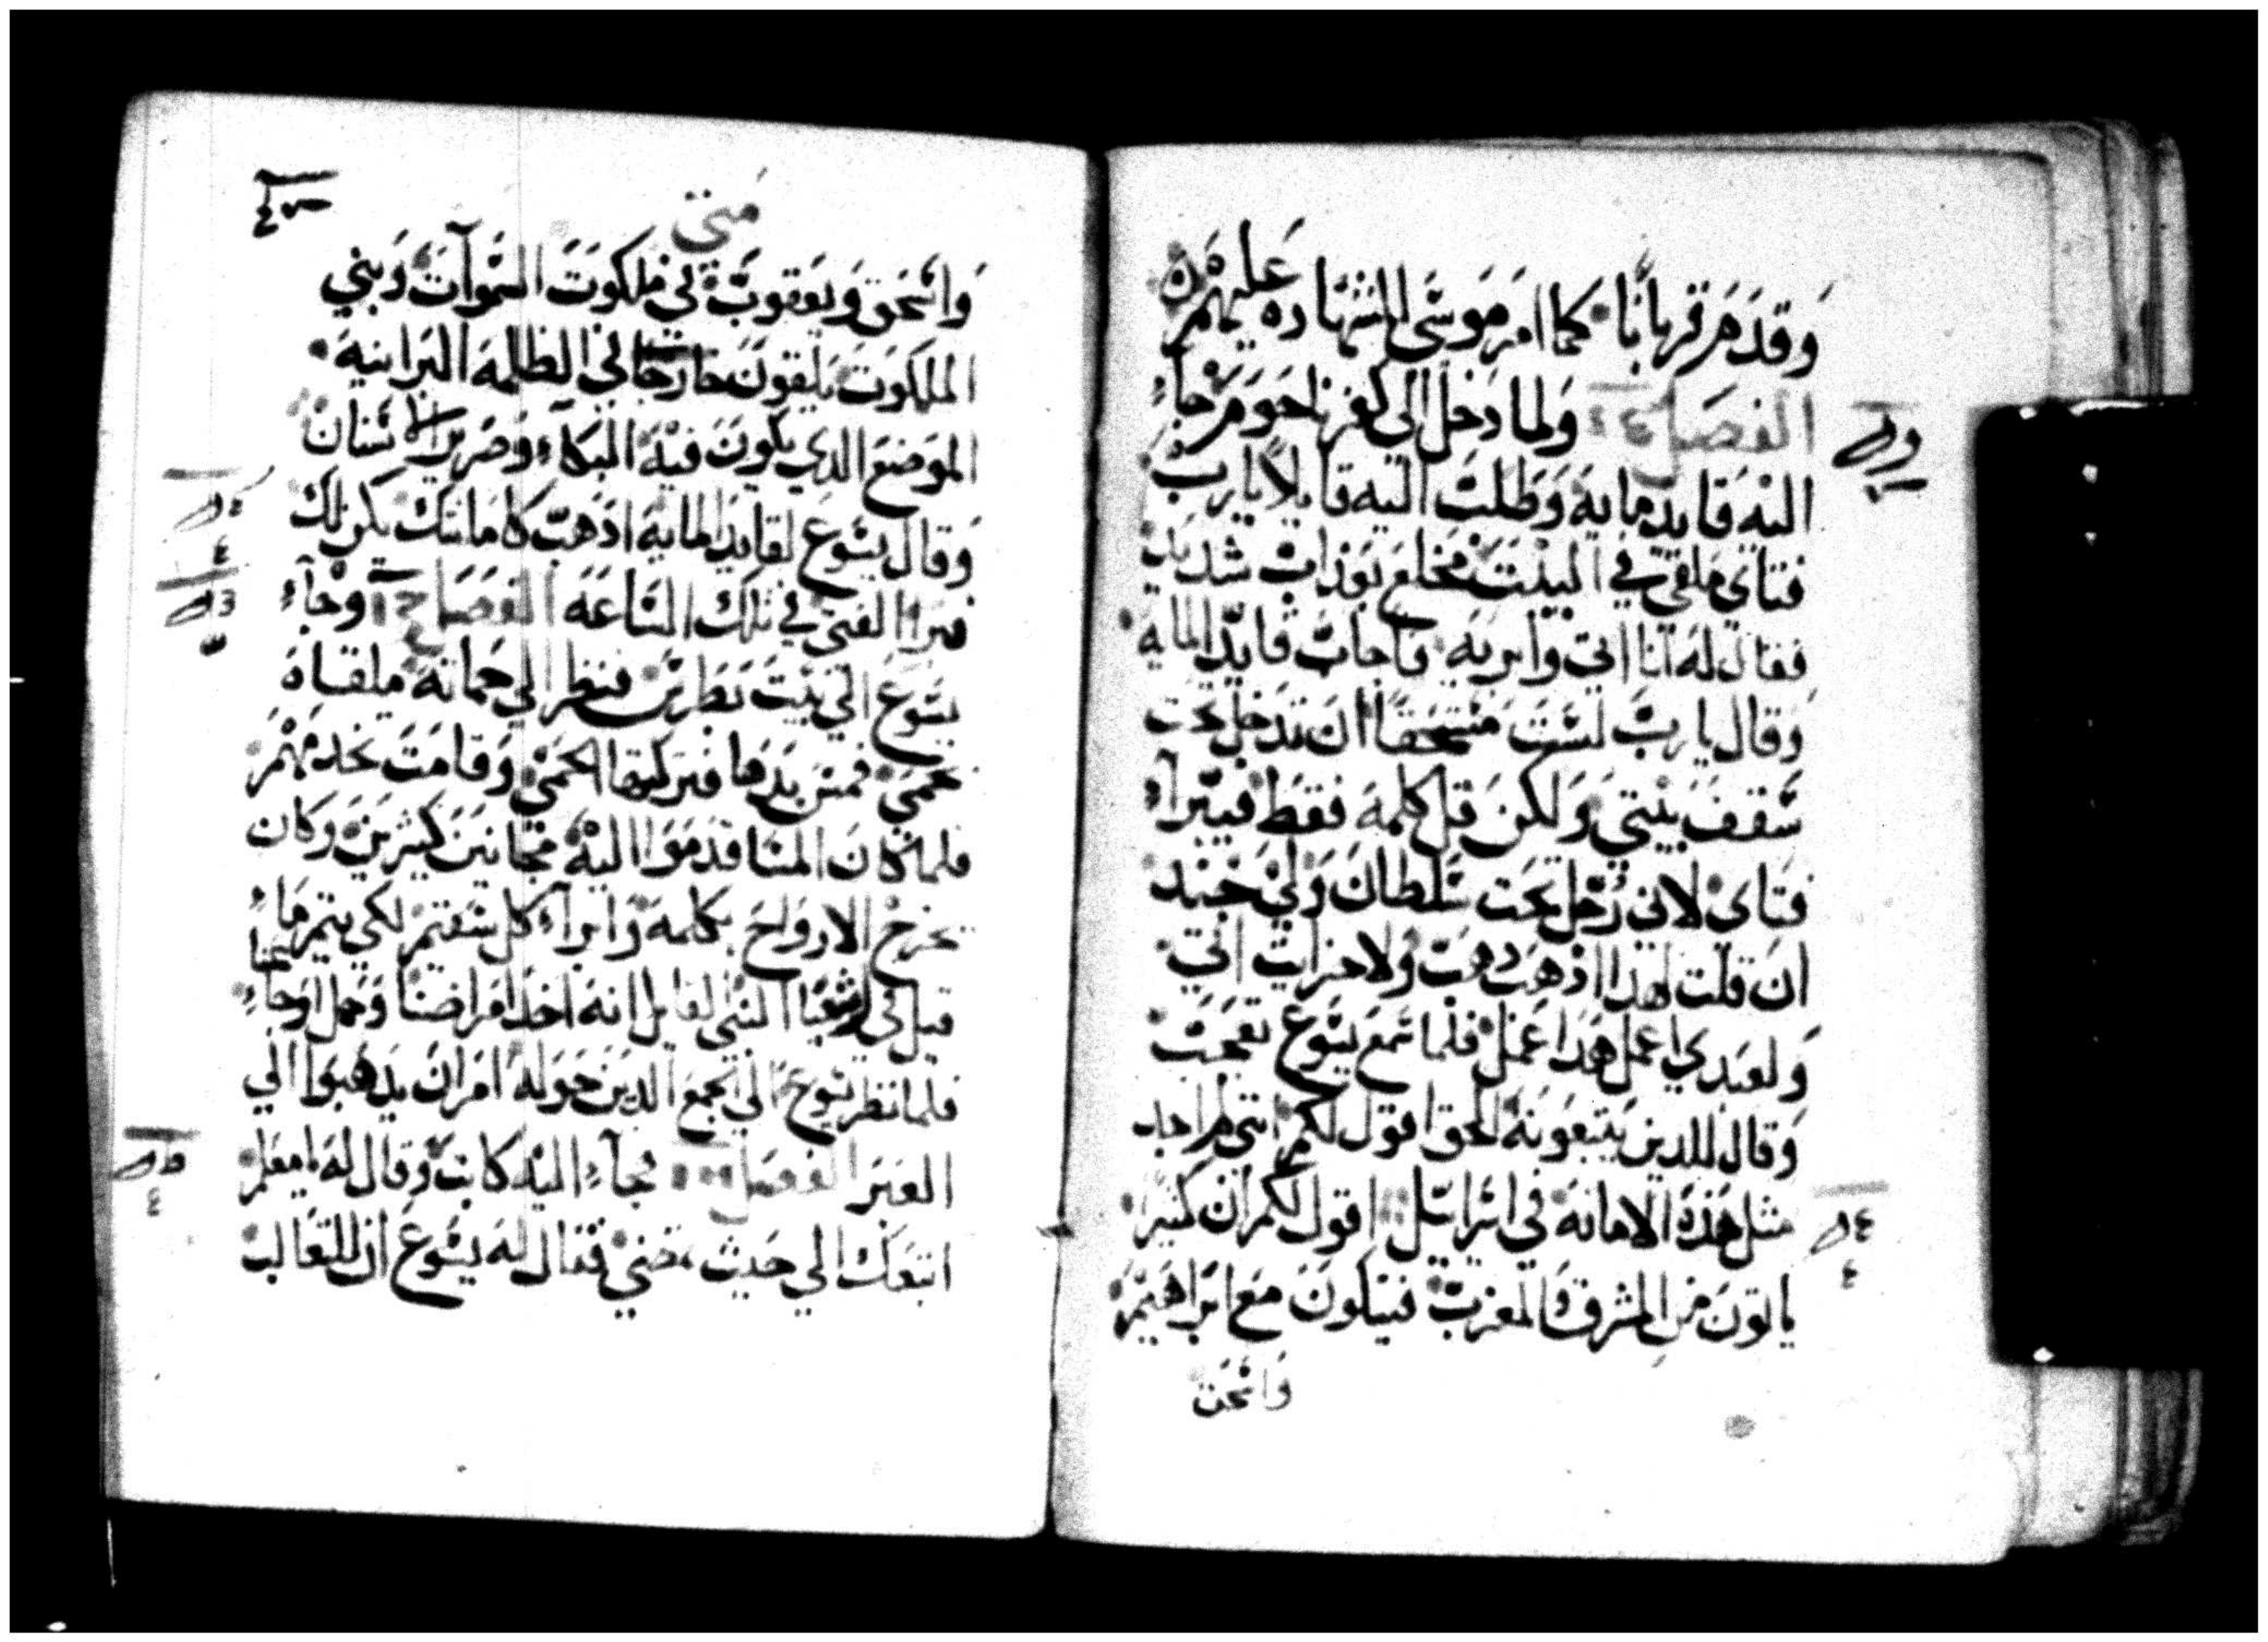 وقدم قربانا كما امر موسي الشهاده عليهم
الفصل ولما دخل الي كفرناحوم جاء
اليه قايد مايه وطلب اليه قايلا يارب
فتاي ملقي في البيت مخلع بعذاب شديد
فقال له انا اتي وابريه فاجاب قايد المايه
وقال يارب لست مستحقا ان تدخل تحت
سقف بيتي ولكن قل كلمه فقط فيبرآء
فتاي لاني رجل تحت سلطان ولي جند
ان قلت لهدا اذهب دهب ولاخر ايت اتي
ولعبدي اعمل هدا عمل فلما سمع يسوع تعجب
وقال للدين يتبعونه الحق اقول لكم انني لم اجد
مثل هذه الامانه في اسراييل اقول لكم ان كثيرا
ياتون من المشرق والمغرب فيتكون مع ابراهيم
واسحق
متي
واسحق ويعقوب في ملكوت السموآت وبني
الملكوت يلقون خارجا في الظلمه البرانيه
الموضع الدي يكون فيه البكآء وصرير الاسنان
وقال يسوع لقايد المايه اذهب كامانتك يكن لك
فبرا الفتي في تلك الساعه الفصل وجآء
يسوع الي بيت بطرس فنظر الي حماته ملقاه
بحمي فمس يدها فتركتها الحمي وقامت تخدمهم
فلما كان المسا قدموا اليه مجانين كثيرين وكان
يخرج الارواح بكلمه وابرآء كل سقيم لكي يتم ماء
قيل في اشعيا النبي القايل انه اخد امراضنا وحمل اوجاءنا
فلما نظر يسوع الي الجمع الدين حوله امر ان يدهبوا الي
العبر الفصل فجآء اليه كاتب وقال له يا معلم
اتبعك الي حيث تمضي فقال له يسوع ان للتعالب